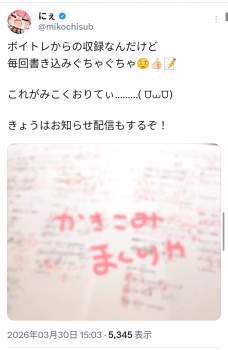 にぇ
@mikochisub
ボイトレからの収録なんだけど
毎回書き込みぐちゃぐちゃ😌👍🏻📝
これがみこくおりてぃ.........( ᐡωᐡ)
きょうはお知らせ配信もするぞ！
かきこみ
まくりや
2026年03月30日 15:03 · 5,345 表示